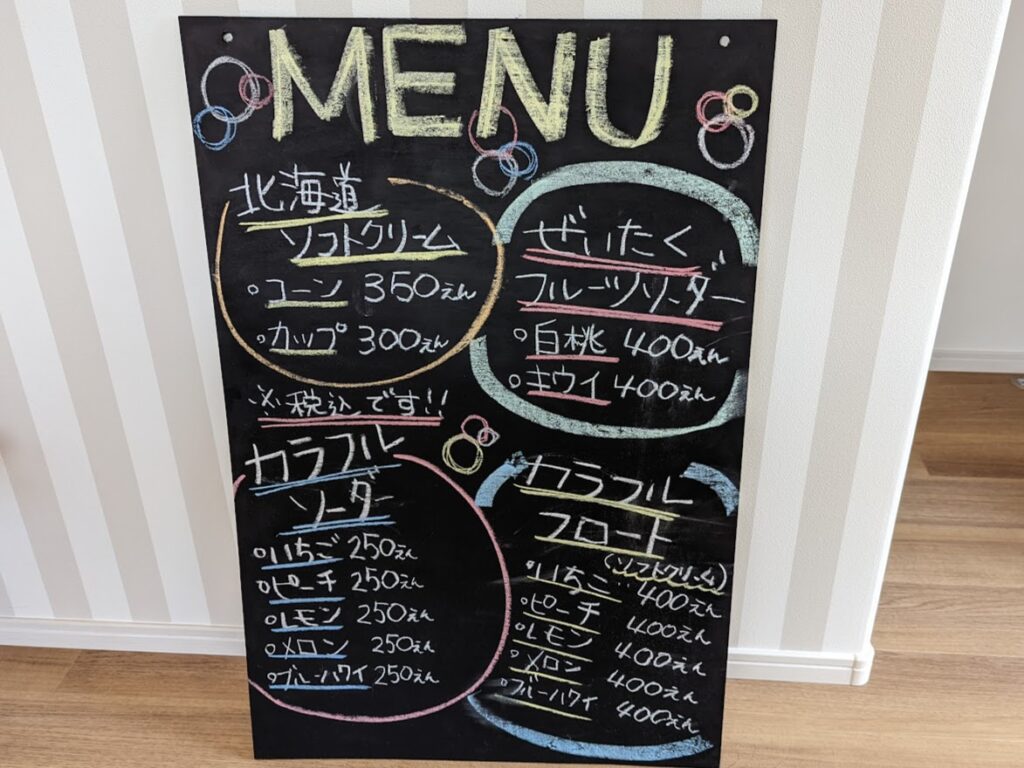 MENU
北海道
ソフトクリーム
。コーン 350えん
。カップ 300えん
※税込です!!
ぜいたく
フルーツソーダー
。白桃 400えん
。キウイ 400えん
カラフル
ソーダー
。いちご 250えん
。ピーチ 250えん
。レモン 250えん
。メロン 250えん
。ブルーハワイ 250えん
カラフル
フロート
(ソフトクリーム)
。いちご 400えん
。ピーチ 400えん
。レモン 400えん
。メロン 400えん
。ブルーハワイ 400えん